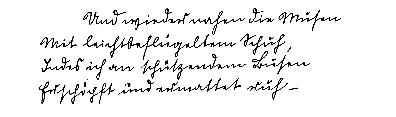 Und wieder nahen die Musen
Mit leichtbeflügeltem Schuh,
Indes ich an schützendem Busen
Erschöpft und ermattet ruh –